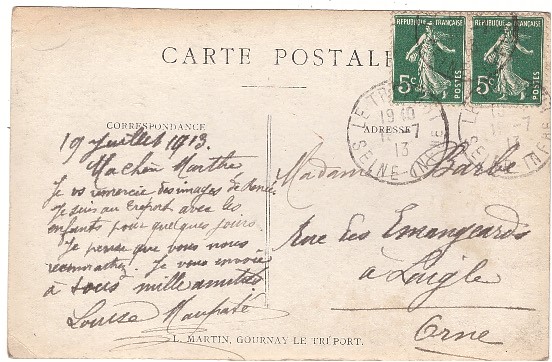 CARTE POSTALE
REPUBLIQUE FRANÇAISE
5c
POSTES
REPUBLIQUE FRANÇAISE
5c
POSTES
LE TRÉPORT
19 40
-7
13
SEINE-INFRE
CORRESPONDANCE
ADRESSE
19 juillet 1913.
Ma chère Marthe
Je vs remercie des images de René.
Je suis au Tréport avec les
enfants pour quelques jours.
Je pense que vous nous
Je vous envoie
à tous mille amitiés
Louise
Madame Barbe
Rue des Emangeards
à Laigle
Orne
L. MARTIN, GOURNAY LE TRÉPORT.